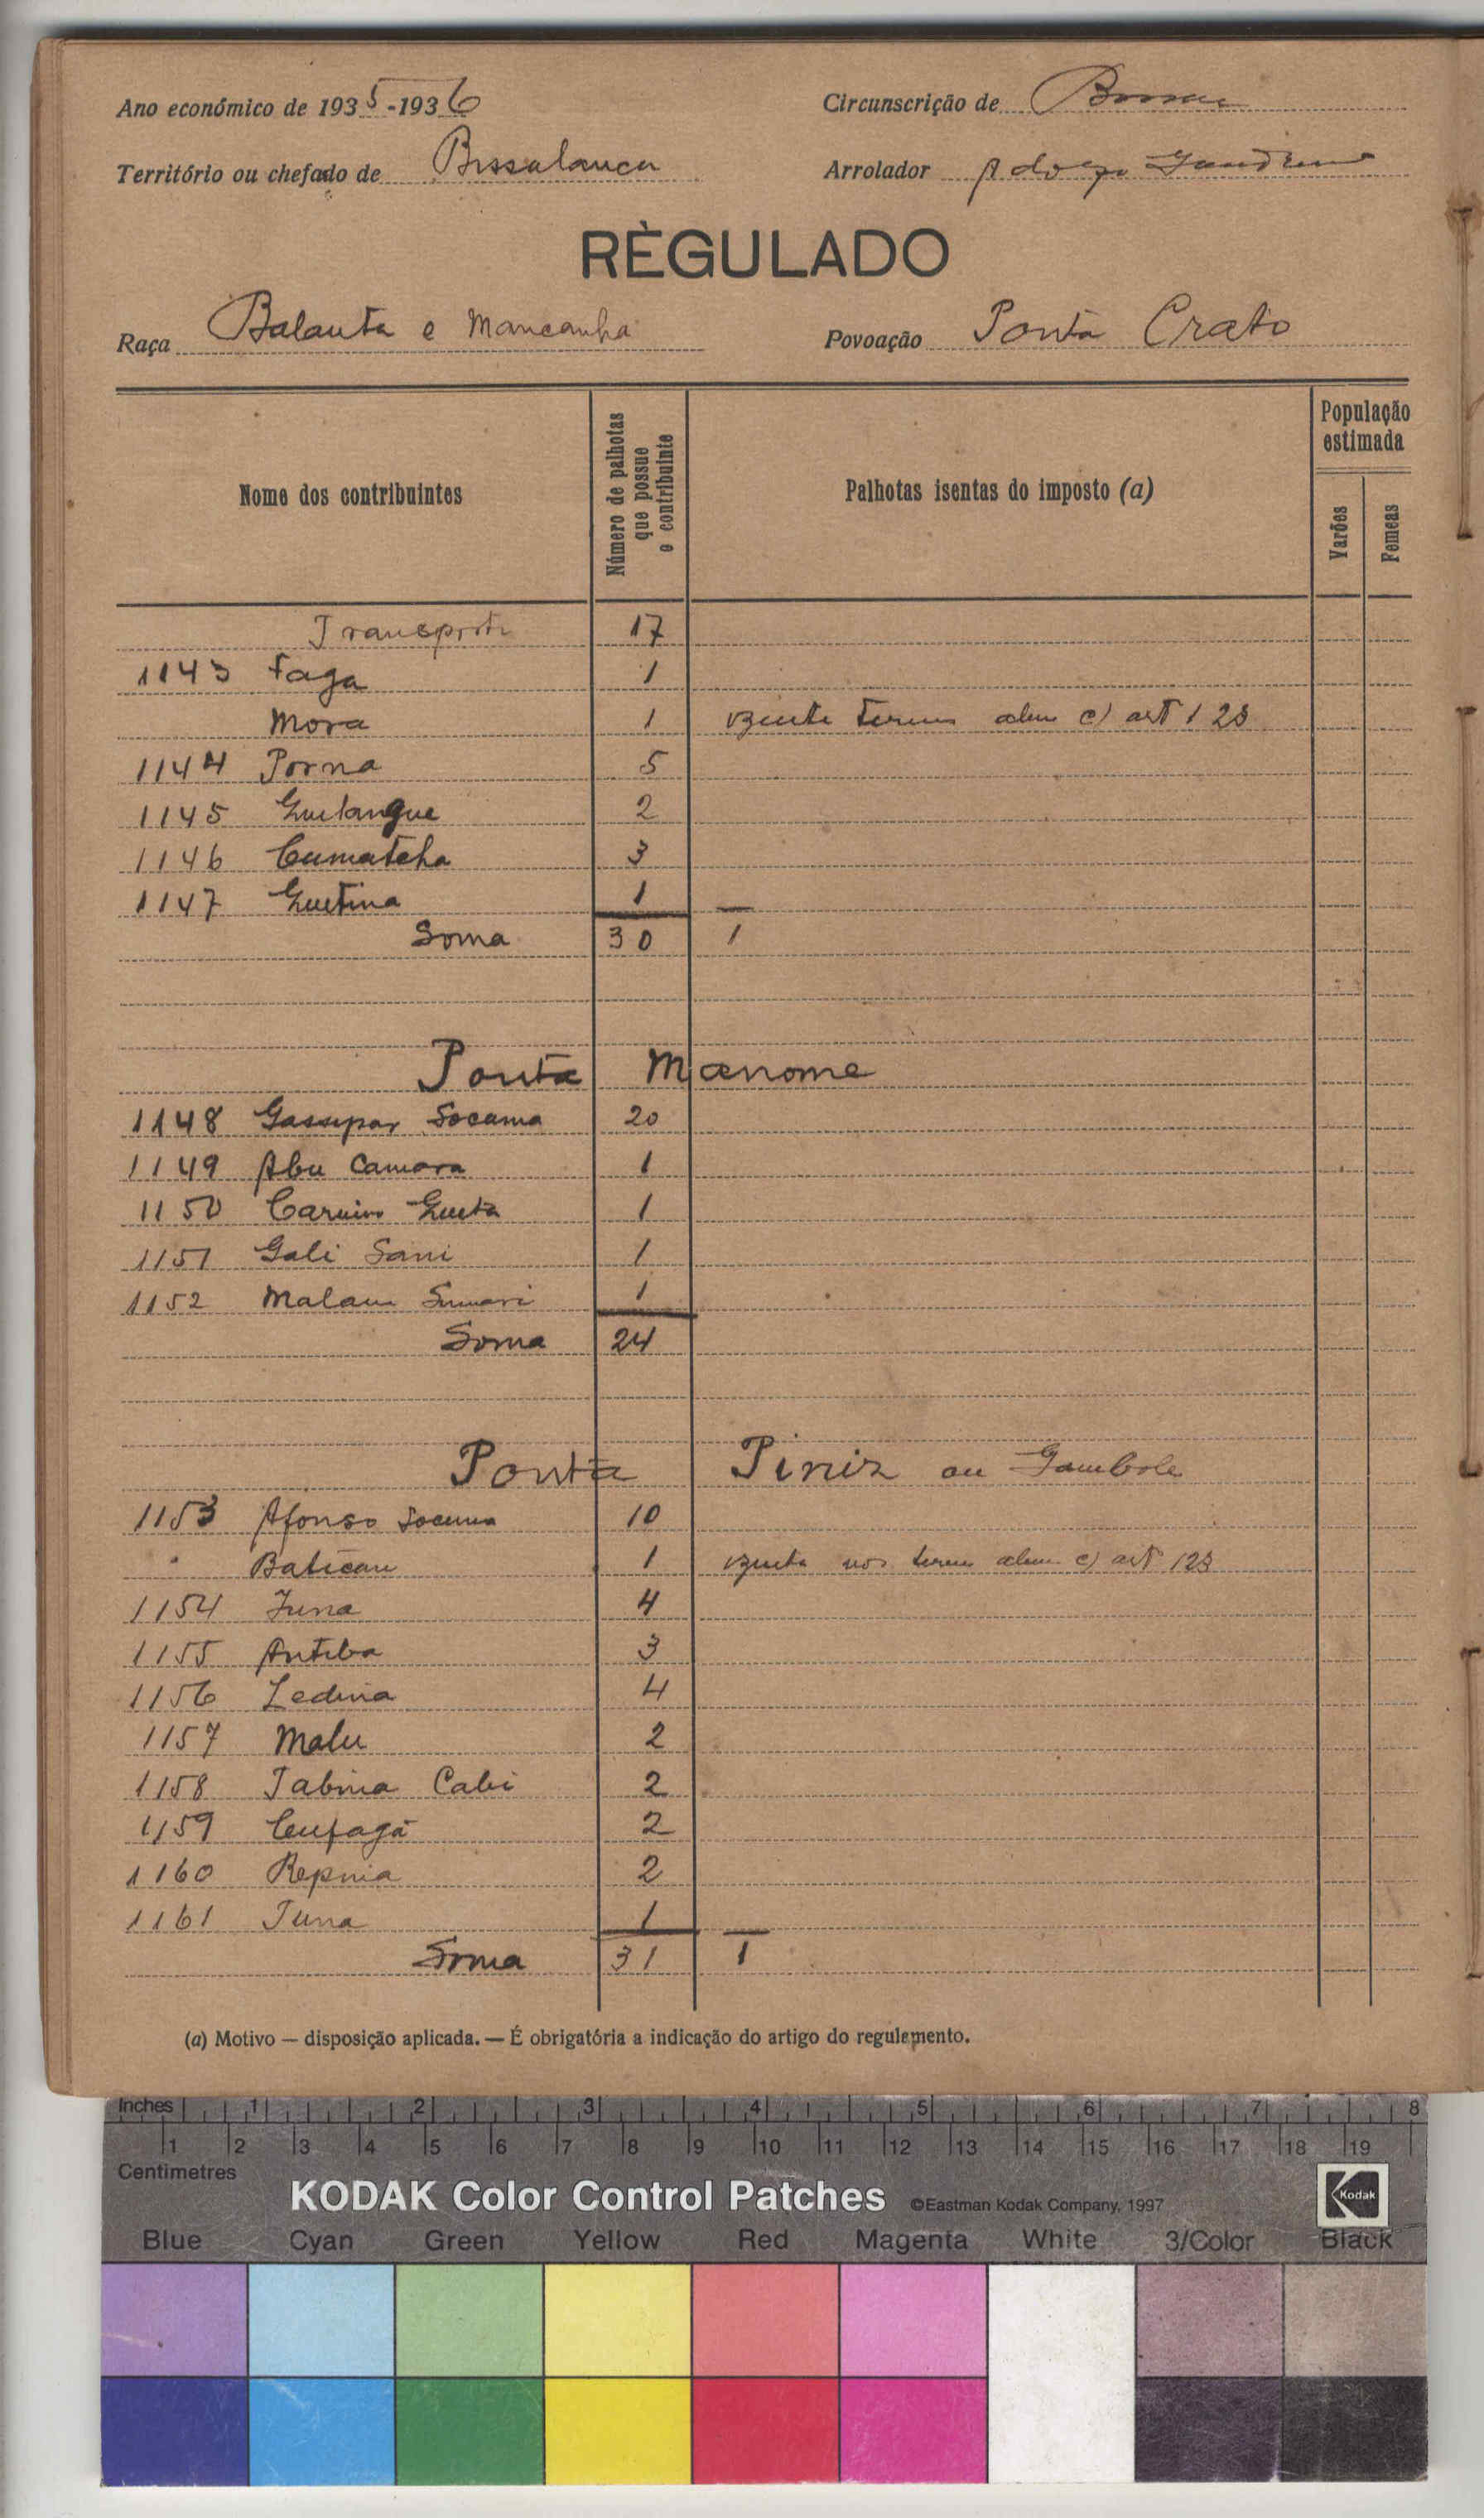 Ano económico de 1935-1936
Circunscrição de
Território ou chefado de Bissalanca
Arrolador Adolfo
RÈGULADO
Raça Balanta e Mancanha
Povoação Ponta Crato
Nome dos contribuintes
Número de palhotas que possue o contribuinte
Palhotas isentas do imposto (a)
População estimada
Varões
Femeas
Transporte 17
1143 Faga 1
Mora 1 art 128
1144 Porna 5
1145 2
1146 Cumatcha 3
1147 1
Soma 30 1
Ponta Manome
1148 Gasspar Socama 20
1149 Abu Camara 1
1150 1
1151 Gali Sani 1
1152 Malam 1
Soma 24
Ponta Piniz ou Gambole
1153 Afonso 10
Batican 1 nos art 128
1154 Juna 4
1155 Antiba 3
1156 Ledina 4
1157 Malu 2
1158 Tabina Cabi 2
1159 Cufagá 2
1160 Repnia 2
1161 Tuna 1
Soma 31 1
(a) Motivo — disposição aplicada. — É obrigatória a indicação do artigo do regulamento.
Inches 1 2 3 4 5 6 7 8
1 2 3 4 5 6 7 8 9 10 11 12 13 14 15 16 17 18 19
Centimetres
KODAK Color Control Patches ©Eastman Kodak Company, 1997 Kodak
Blue Cyan Green Yellow Red Magenta White 3/Color Black